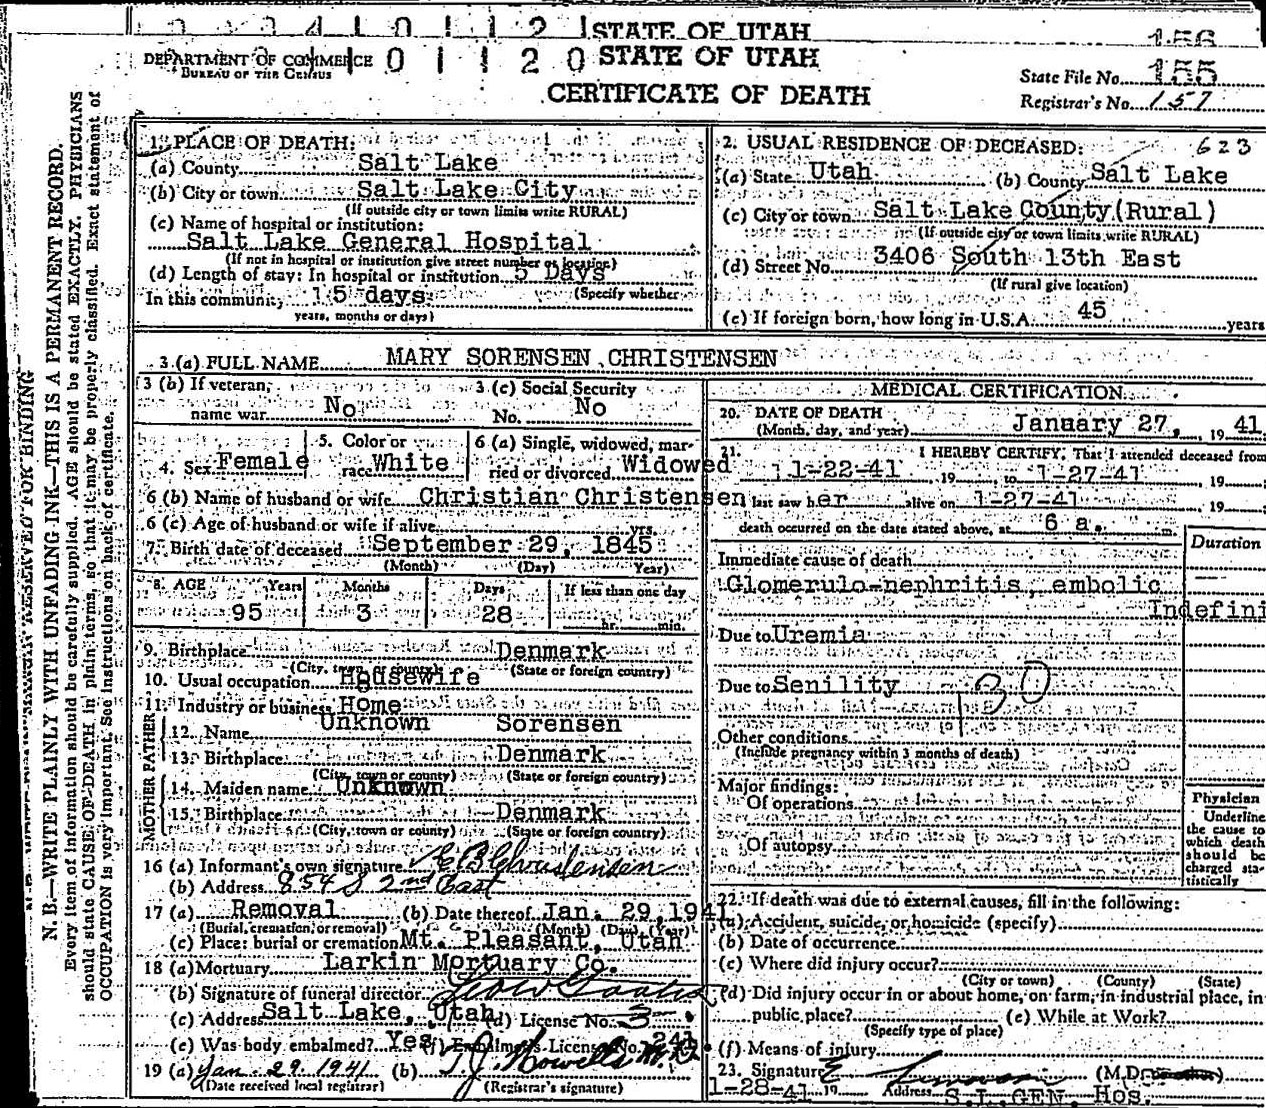 STATE OF UTAH
156
DEPARTMENT OF COMMERCE
BUREAU OF THE CENSUS
0 1 1 2 0 STATE OF UTAH
CERTIFICATE OF DEATH
State File No. 155
Registrar's No. 157
N. B.—WRITE PLAINLY WITH UNFADING INK—THIS IS A PERMANENT RECORD.
Every item of information should be carefully supplied. AGE should be stated EXACTLY. PHYSICIANS
should state CAUSE OF DEATH in plain terms, so that it may be properly classified. Exact statement of
OCCUPATION is very important. See instructions on back of certificate.
RESERVED FOR BINDING
1. PLACE OF DEATH:
(a) County Salt Lake
(b) City or town Salt Lake City
(If outside city or town limits write RURAL)
(c) Name of hospital or institution:
Salt Lake General Hospital
(If not in hospital or institution give street number or location)
(d) Length of stay: In hospital or institution 5 Days
In this community 15 days (Specify whether
years, months or days)
2. USUAL RESIDENCE OF DECEASED: 623
(a) State Utah (b) County Salt Lake
(c) City or town Salt Lake County (Rural)
(If outside city or town limits write RURAL)
(d) Street No. 3406 South 13th East
(If rural give location)
(e) If foreign born, how long in U.S.A. 45 years
3 (a) FULL NAME MARY SORENSEN CHRISTENSEN
3 (b) If veteran, name war No
3 (c) Social Security No. No
4. Sex Female
5. Color or race White
6 (a) Single, widowed, married or divorced Widowed
6 (b) Name of husband or wife Christian Christensen
6 (c) Age of husband or wife if alive yrs.
7. Birth date of deceased September 29, 1845
(Month) (Day) (Year)
8. AGE Years Months Days If less than one day
95 3 28 hr. min.
9. Birthplace Denmark
(City, town or county) (State or foreign country)
10. Usual occupation Housewife
11. Industry or business Home
FATHER
12. Name Unknown Sorensen
13. Birthplace Denmark
(City, town or county) (State or foreign country)
MOTHER
14. Maiden name Unknown
15. Birthplace Denmark
(City, town or county) (State or foreign country)
16 (a) Informant's own signature E B Christensen
(b) Address 854 S 2nd East
17 (a) Removal (b) Date thereof Jan. 29, 1941
(Burial, cremation, or removal) (Month) (Day) (Year)
(c) Place: burial or cremation Mt. Pleasant, Utah
18 (a) Mortuary Larkin Mortuary Co.
(b) Signature of funeral director
(c) Address Salt Lake, Utah (d) License No. 3
(e) Was body embalmed? Yes (f) Embalmers License No. 241
19 (a) Jan. 29. 1941 (b) T. J. Howells M.D.
(Date received local registrar) (Registrar's signature)
MEDICAL CERTIFICATION
20. DATE OF DEATH
(Month, day, and year) January 27, 19 41
21. I HEREBY CERTIFY, That I attended deceased from
1-22-41, 19 to 1-27-41, 19
last saw her alive on 1-27-41, 19
death occurred on the date stated above, at 6 a. m.
Duration
Immediate cause of death
Glomerulo-nephritis, embolic
Indefini
Due to Uremia
Due to Senility 130
Other conditions
(Include pregnancy within 3 months of death)
Major findings:
Of operations
Of autopsy
Physician
Underline
the cause to
which death
should be
charged sta-
tistically
22. If death was due to external causes, fill in the following:
(a) Accident, suicide, or homicide (specify)
(b) Date of occurrence
(c) Where did injury occur?
(City or town) (County) (State)
(d) Did injury occur in or about home, on farm, in industrial place, in
public place? (e) While at Work?
(Specify type of place)
(f) Means of injury
23. Signature (M.D.
1-28-41 19 Address S.L. GEN. Hos.